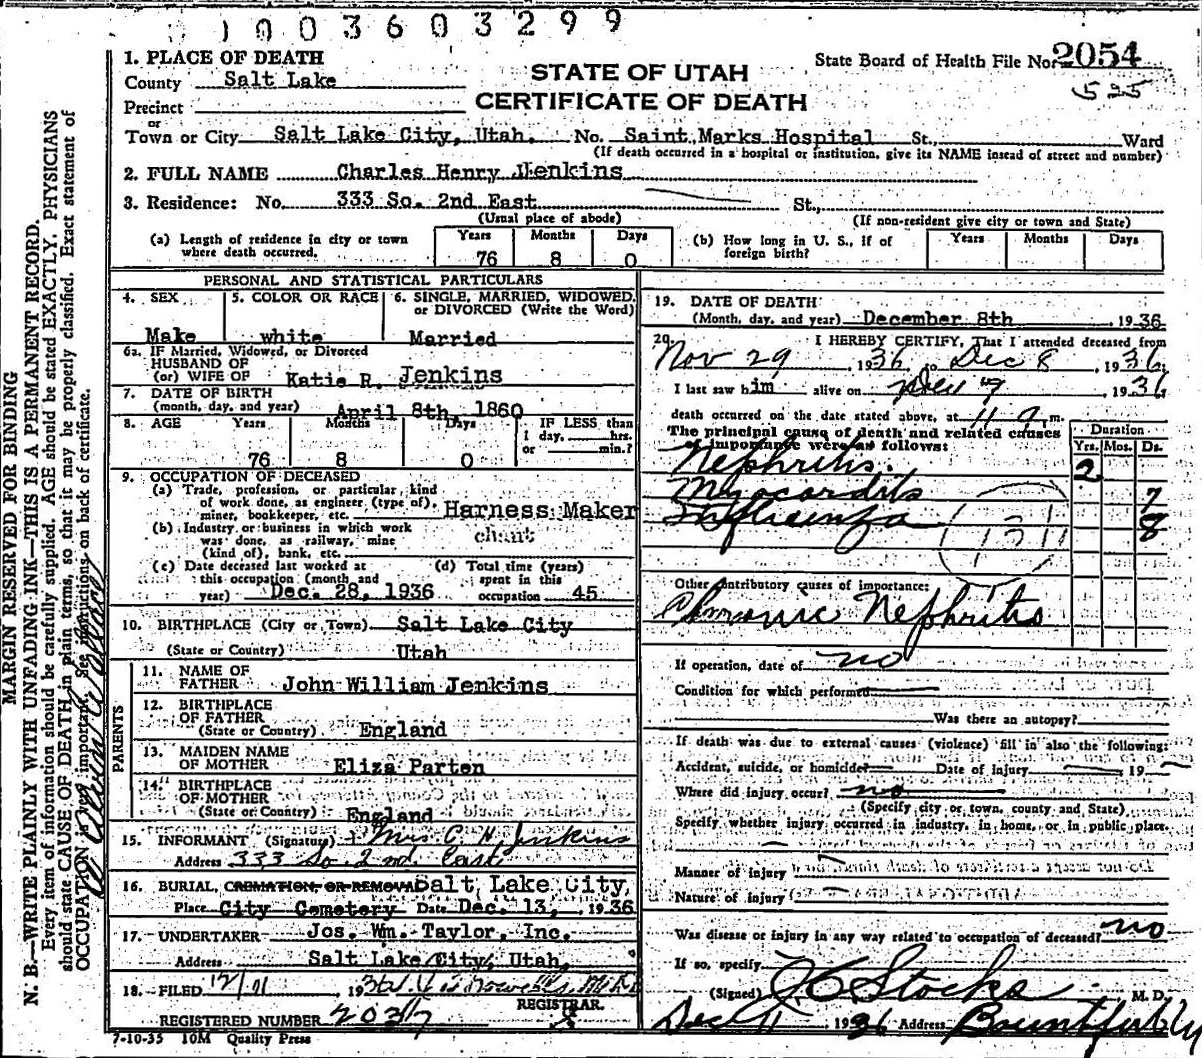 1003603299
1. PLACE OF DEATH
State Board of Health File No. 2054
County Salt Lake
STATE OF UTAH
525
Precinct
CERTIFICATE OF DEATH
or
Town or City Salt Lake City, Utah. No. Saint Marks Hospital St., Ward
(If death occurred in a hospital or institution, give its NAME insead of street and number)
2. FULL NAME Charles Henry Jenkins
3. Residence: No. 333 So. 2nd East St.,
(Usual place of abode) (If non-resident give city or town and State)
(a) Length of residence in city or town where death occurred.
Years Months Days
76 8 0
(b) How long in U. S., if of foreign birth?
Years Months Days
PERSONAL AND STATISTICAL PARTICULARS
4. SEX 5. COLOR OR RACE 6. SINGLE, MARRIED, WIDOWED,
or DIVORCED (Write the Word)
Make white Married
6a. IF Married, Widowed, or Divorced
HUSBAND OF
(or) WIFE OF Katie R. Jenkins
7. DATE OF BIRTH
(month, day, and year) April 8th, 1860
8. AGE Years Months Days IF LESS than
1 day, hrs.
or min.?
76 8 0
9. OCCUPATION OF DECEASED
(a) Trade, profession, or particular kind
of work done, as engineer (type of),
miner, bookkeeper, etc. Harness Maker
(b) Industry or business in which work
was done, as railway, mine
(kind of), bank, etc.
(c) Date deceased last worked at
this occupation (month and
year) Dec. 28, 1936
(d) Total time (years)
spent in this
occupation 45
10. BIRTHPLACE (City or Town) Salt Lake City
(State or Country) Utah
PARENTS
11. NAME OF
FATHER John William Jenkins
12. BIRTHPLACE
OF FATHER
(State or Country) England
13. MAIDEN NAME
OF MOTHER Eliza Parton
14. BIRTHPLACE
OF MOTHER
(State or Country) England
15. INFORMANT (Signature) Mrs C. H. Jenkins
Address 333 So. 2nd East
16. BURIAL, CREMATION, OR REMOVAL Salt Lake City,
Place City Cemetery Date Dec. 13, 1936
17. UNDERTAKER Jos. Wm. Taylor, Inc.
Address Salt Lake City, Utah,
18. FILED 12/11 193
REGISTRAR.
REGISTERED NUMBER 2037
7-10-35 10M Quality Press
19. DATE OF DEATH
(Month, day, and year) December 8th, 1936
20. I HEREBY CERTIFY, That I attended deceased from
Nov 29 1936 to Dec 8, 1936
I last saw him alive on 1936
death occurred on the date stated above, at 11 m.
The principal cause of death and related causes
of importance were as follows:
Duration
Yrs. Mos. Ds.
Nephritis. 2
Myocarditis 7
Influenza 8
131
Other contributory causes of importance:
Chronic Nephritis
If operation, date of no
Condition for which performed
Was there an autopsy?
If death was due to external causes (violence) fill in also the following:
Accident, suicide, or homicide Date of injury 19
Where did injury occur? no
(Specify city or town, county and State)
Specify whether injury occurred in industry, in home, or in public place.
Manner of injury
Nature of injury
Was disease or injury in any way related to occupation of deceased? no
If so, specify
(Signed) Stocks M. D.
Dec 11 1936 Address Bountiful U
MARGIN RESERVED FOR BINDING
N. B.—WRITE PLAINLY WITH UNFADING INK—THIS IS A PERMANENT RECORD.
Every item of information should be carefully supplied. AGE should be stated EXACTLY. PHYSICIANS
should state CAUSE OF DEATH in plain terms, so that it may be properly classified. Exact statement of
OCCUPATION is very important. See instructions on back of certificate.